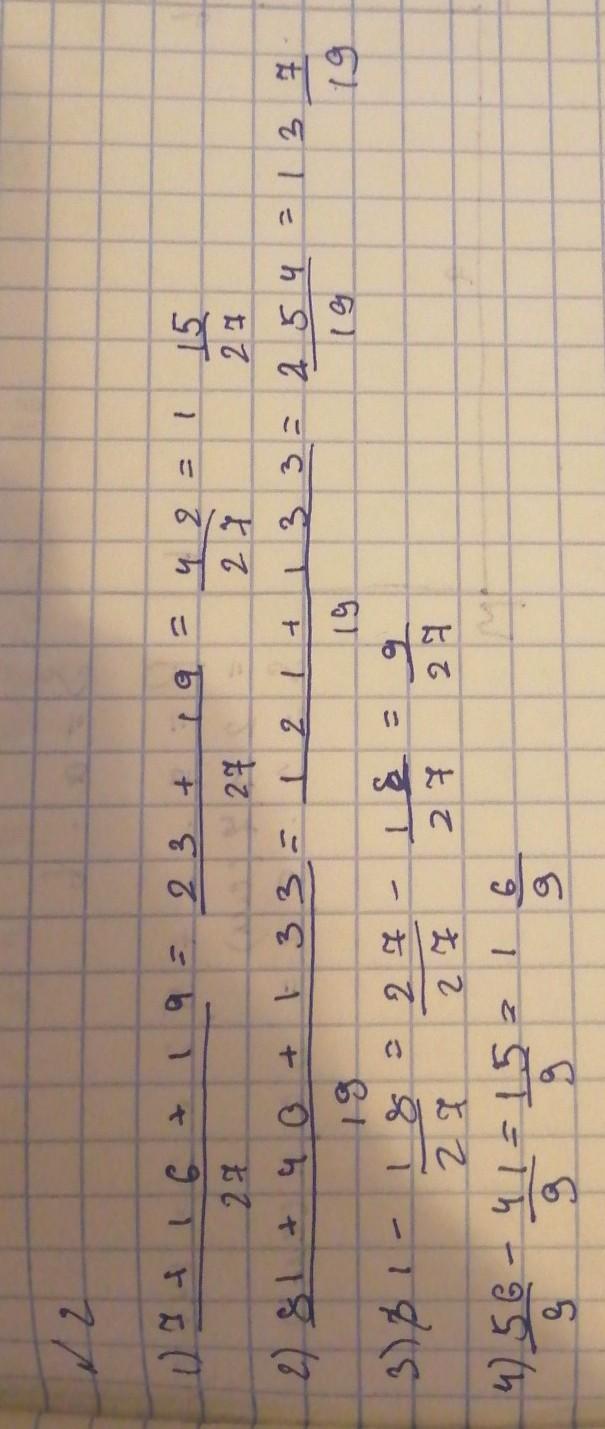 √ 2
1) 7 + 16 + 19 / 27 = 23 + 19 / 27 = 42/27 = 1 15/27
2) 81 + 40 + 133 / 19 = 121 + 133 / 19 = 254/19 = 13 7/19
3) 1 - 18/27 = 27/27 - 18/27 = 9/27
4) 56/9 - 41/9 = 15/9 = 1 6/9